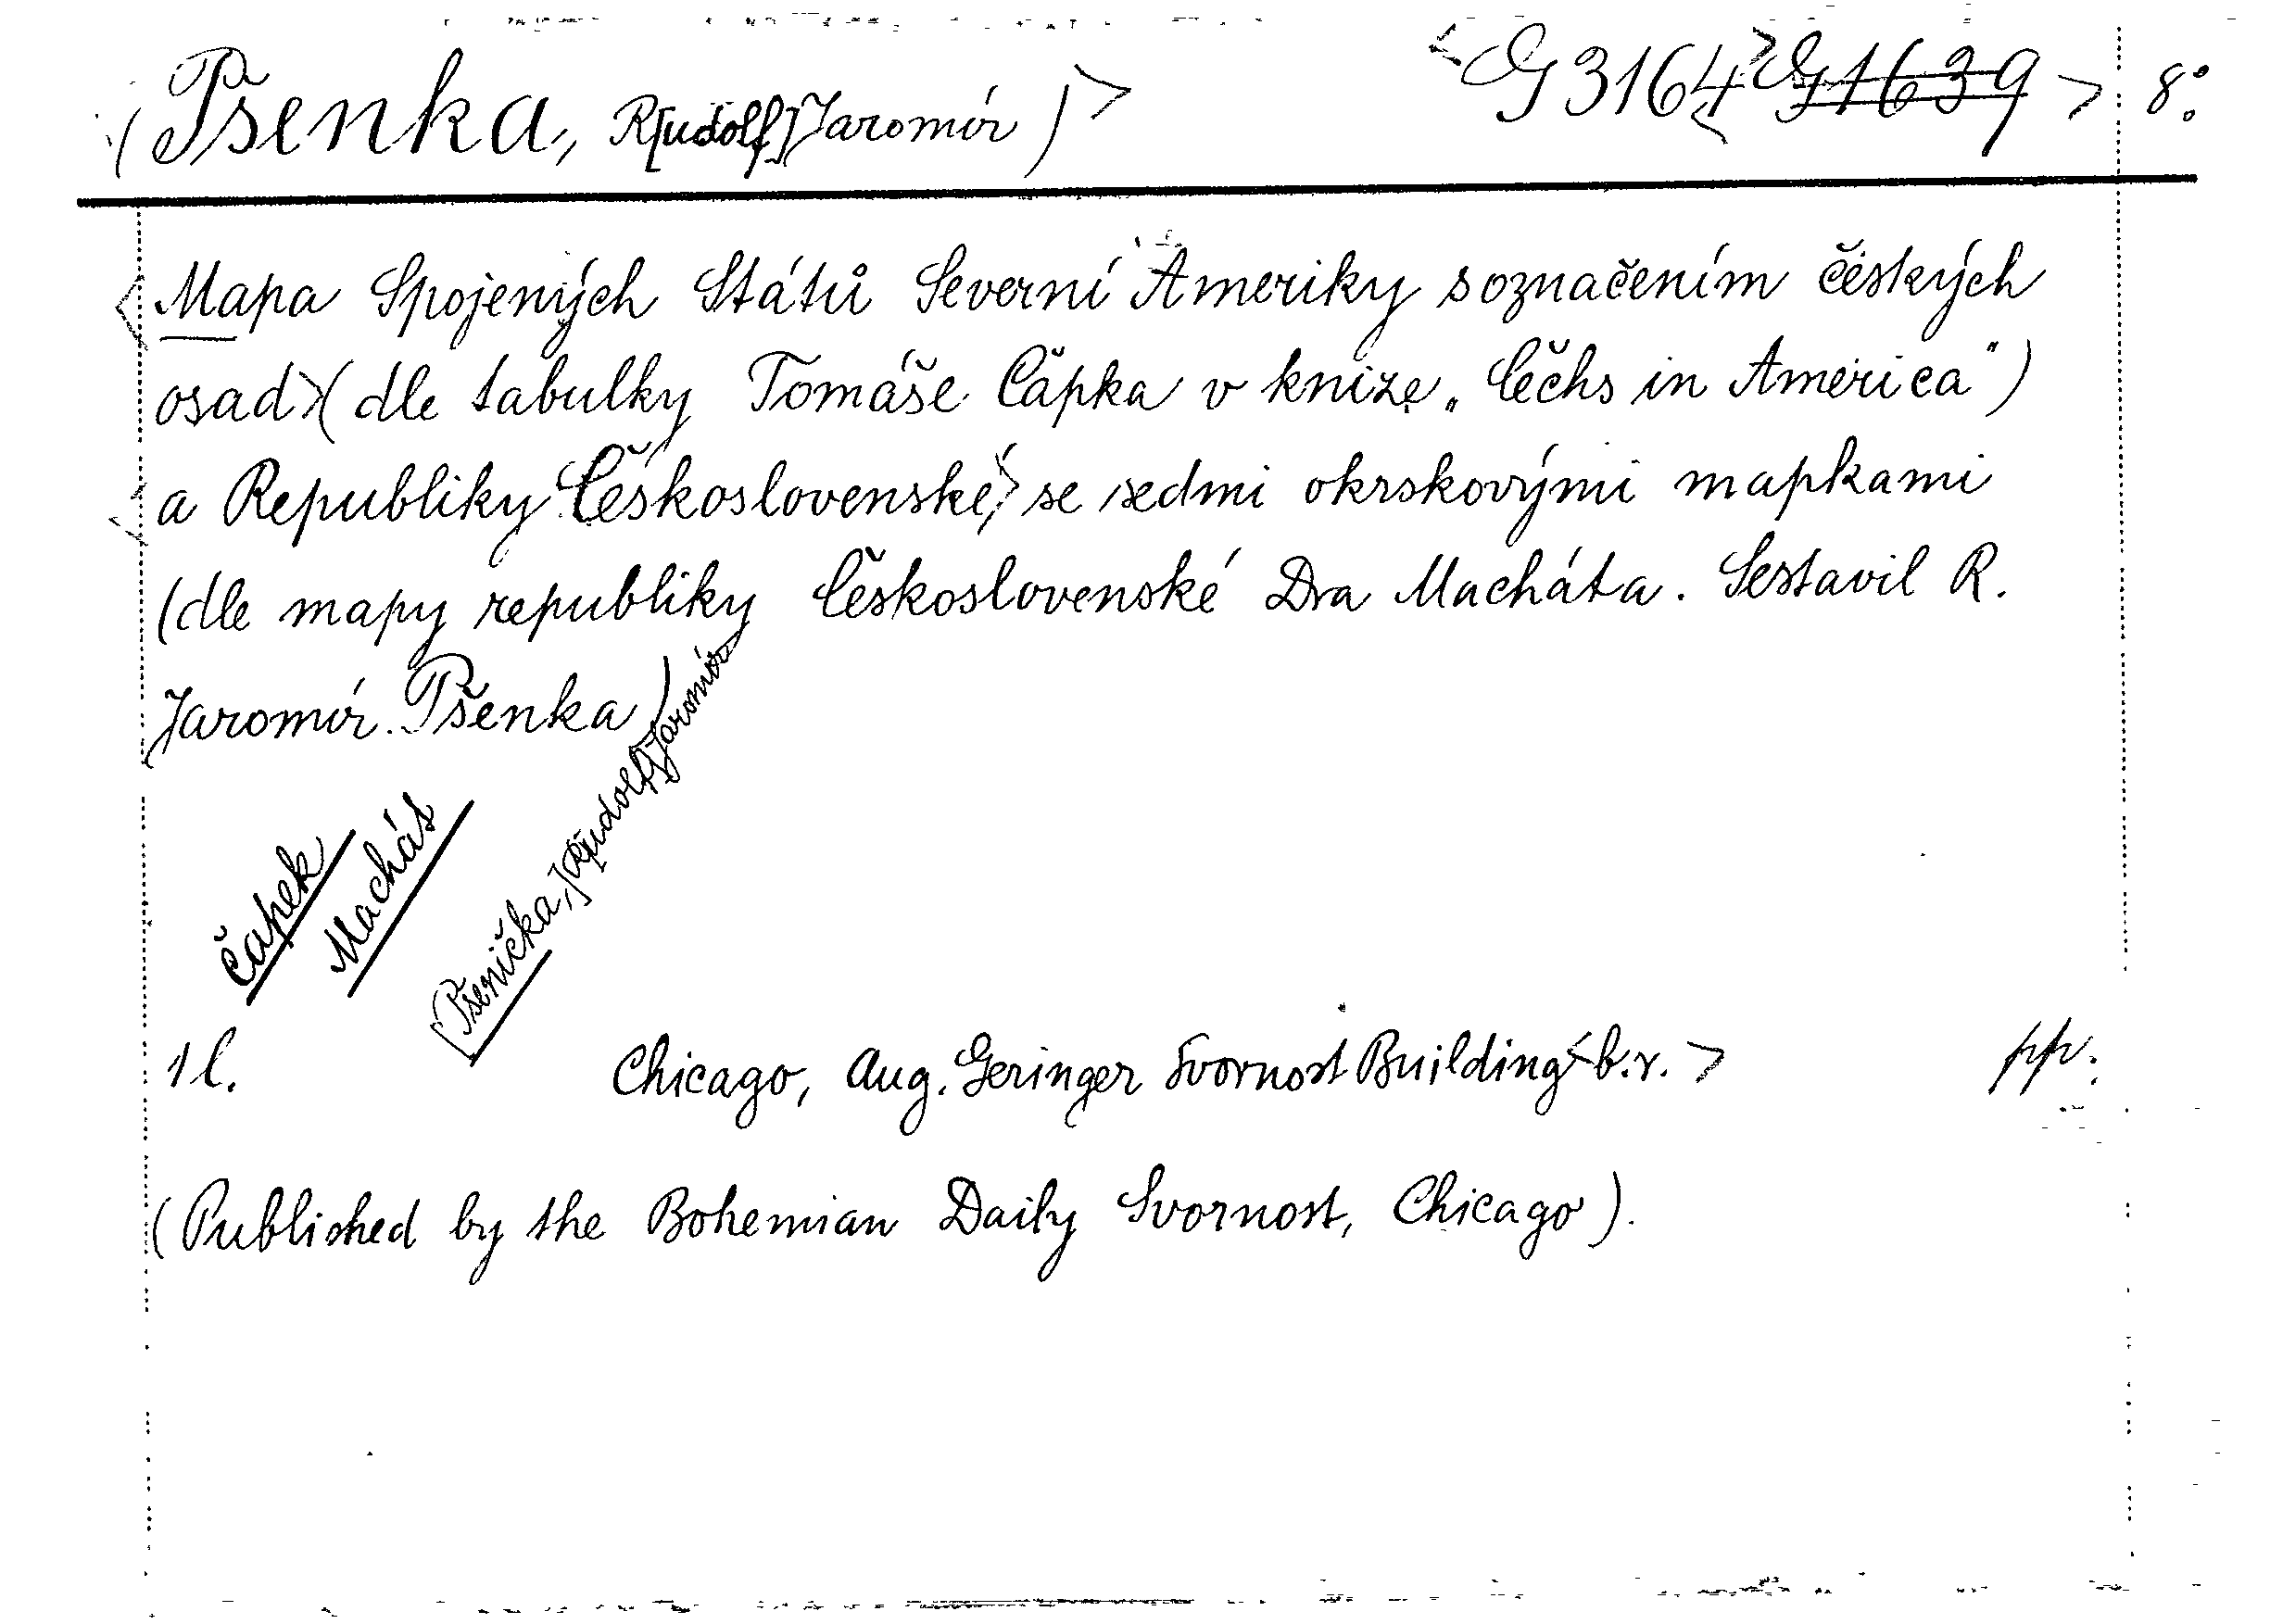 (Pšenka, R[udolf] Jaromír)> <G 3164> G 1639 > 8°.
<Mapa Spojených Států Severní Ameriky s označením českých
osad>(dle tabulky Tomáše Čapka v knize „Čechs in America")
a Republiky Československé,> se sedmi okrskovými mapkami
(dle mapy republiky Československé Dra Macháta. Sestavil R.
Jaromír Pšenka)
Čapek
Machát
[Pšenička,] R[udolf] Jaromír
1 l. Chicago, Aug. Geringer Svornost Building <b.r.> pp.
(Published by the Bohemian Daily Svornost, Chicago).